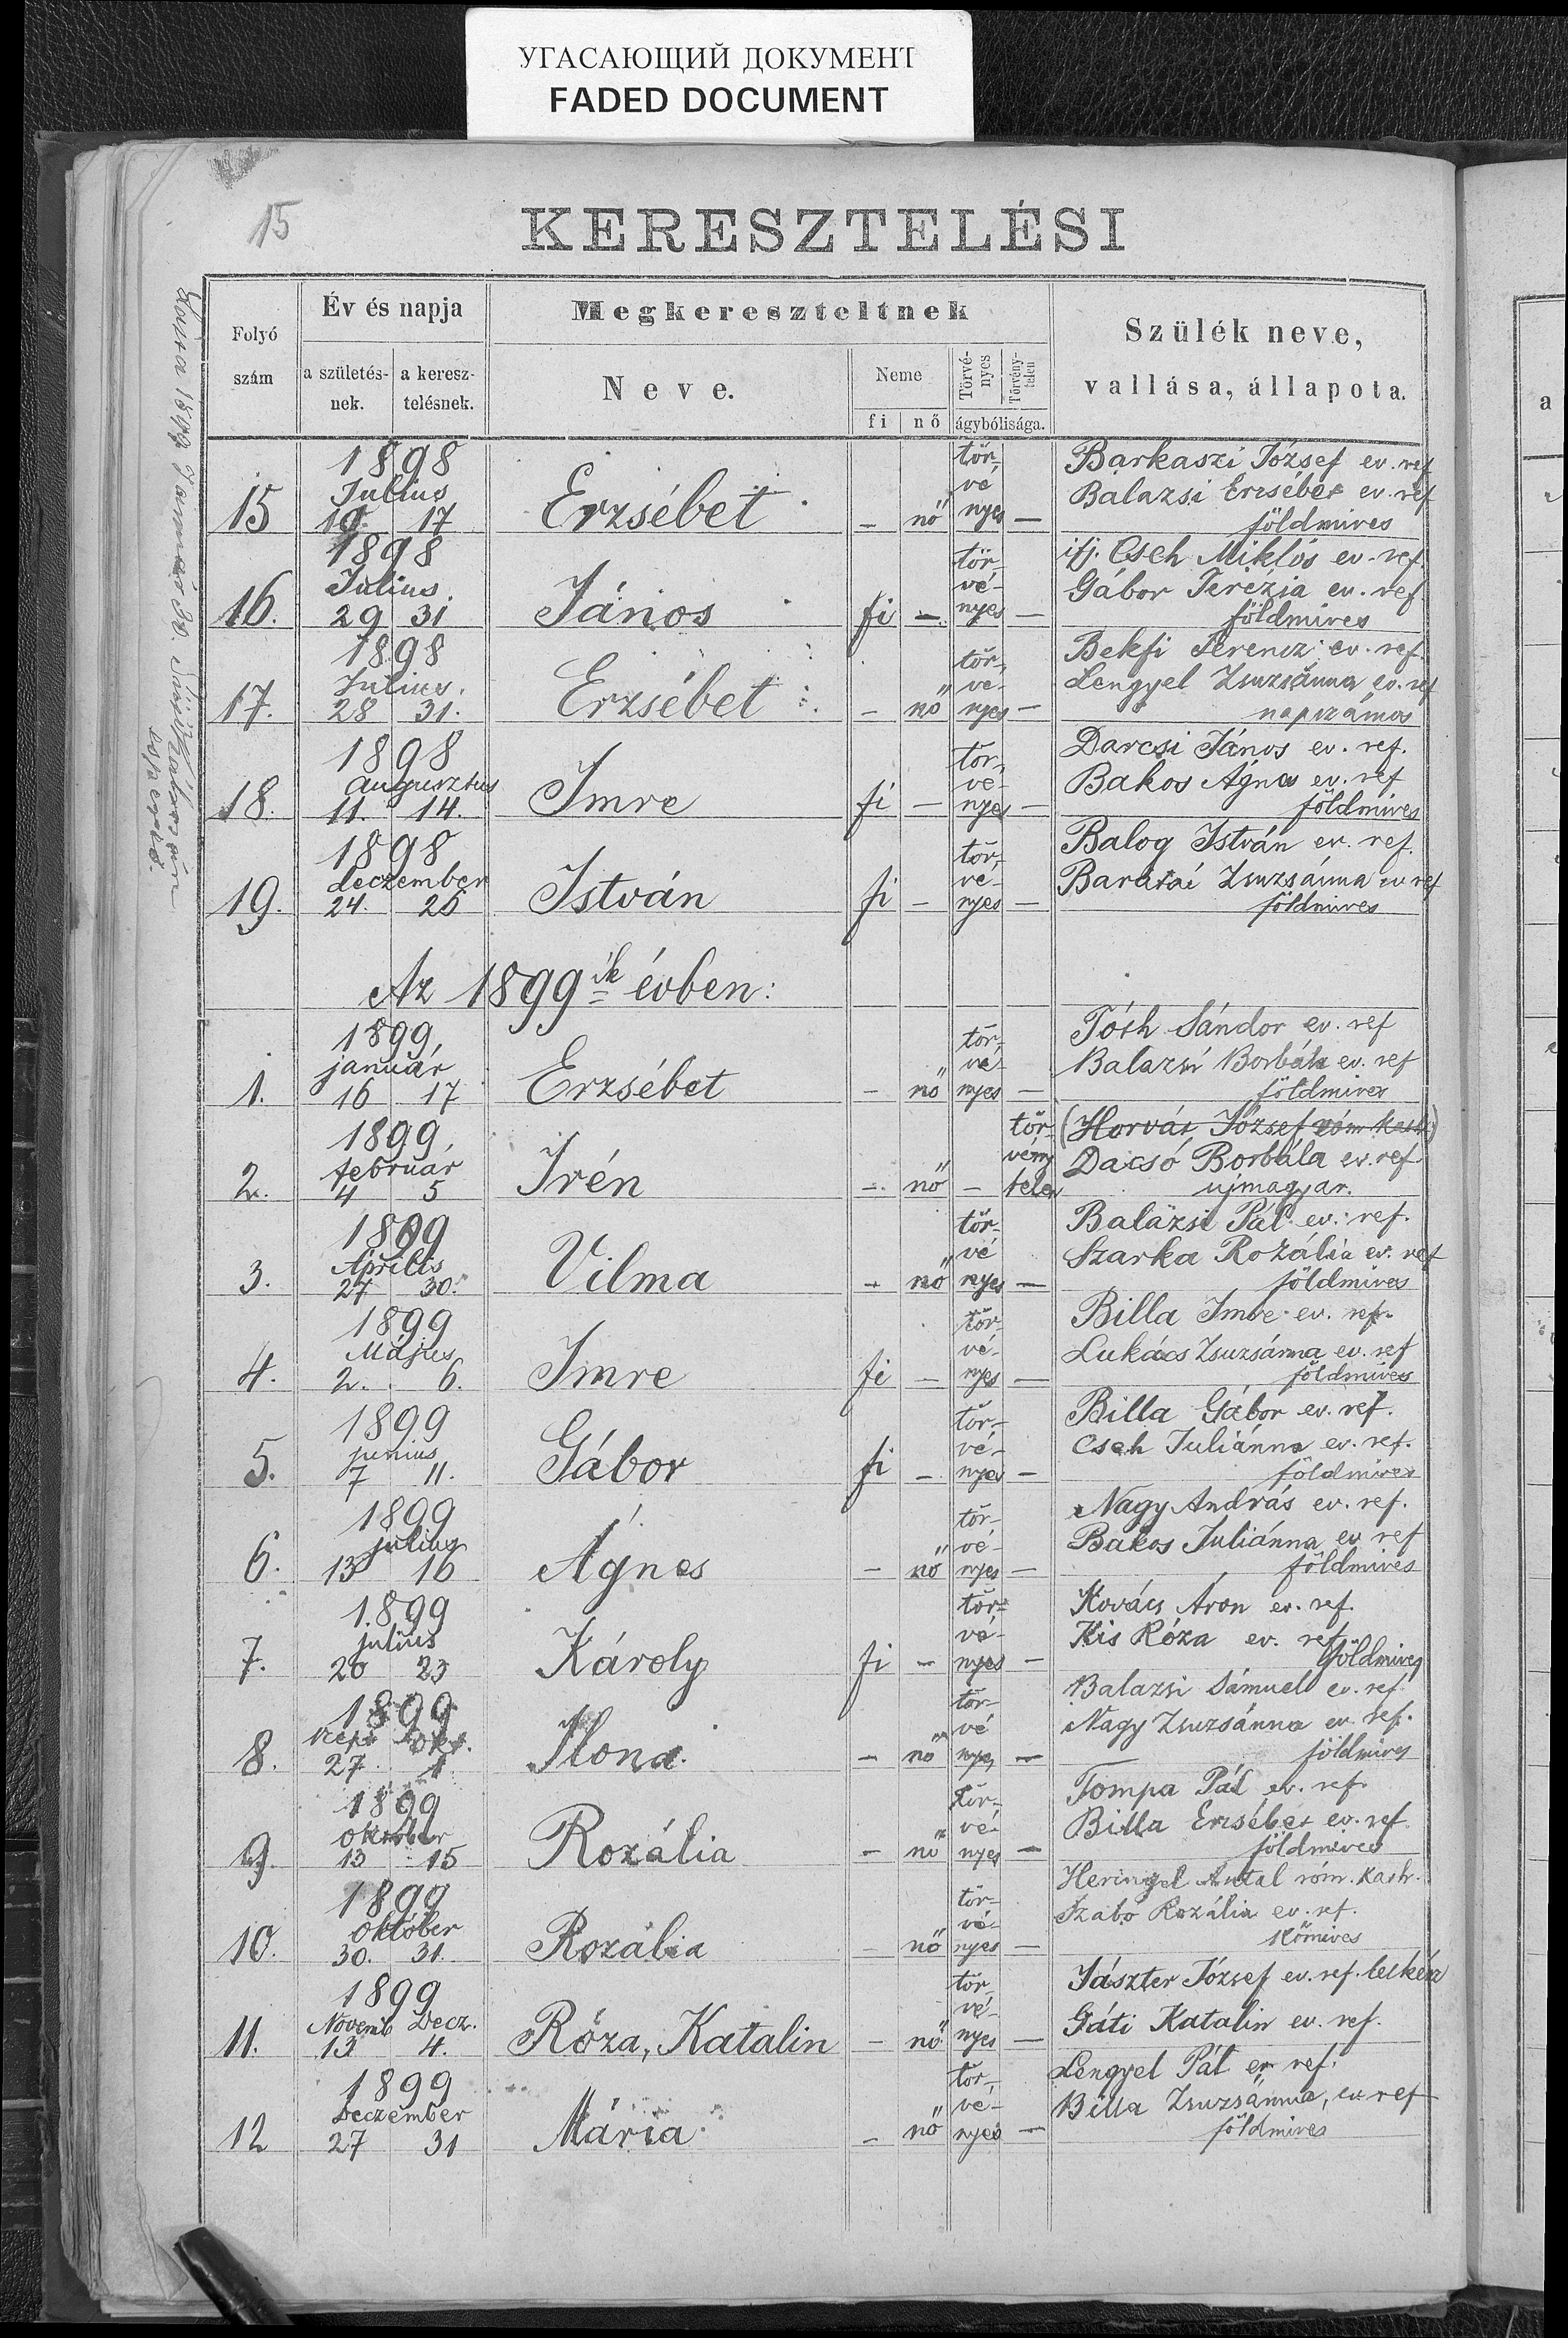 УГАСАЮЩИЙ ДОКУМЕНТ
FADED DOCUMENT
15
KERESZTELÉSI
Folyó szám
Év és napja
a születés-nek.
a keresz-telésnek.
Megkereszteltnek
Neve.
Neme
fi nő
Törvé-nyes
Törvény-telen
ágybólisága.
Szülék neve,
vallása, állapota.
1898 tör- Barkaszi József ev. ref
Julius vé Balázsi Erzsébet ev. ref
15 10. 17 Erzsébet - nő nyes - földmives
1898 tör- ifj. Cseh Miklós ev. ref.
Julius. vé- Gábor Terézia ev. ref
16. 29 31 János fi - nyes - földmives
1898 tör- Bekfi Ferencz ev. ref.
Julius. vé- Lengyel Zsuzsánna ev. ref
17. 28 31. Erzsébet - nő nyes - napszámos
1898 tör- Darcsi János ev. ref.
augusztus vé- Bakos Ágnes ev. ref
18. 11. 14. Imre fi - nyes - földmives
1898 tör- Balog István ev. ref.
deczember vé- Zsuzsánna ev ref
19. 24. 25 István fi - nyes - földmives
Az 1899ik évben:
1899, tör- Tóth Sándor ev. ref
január vé- Balazsi Borbála ev. ref
1. 16 17 Erzsébet - nő nyes - földmives
1899, tör- (Horvát József róm. kath.)
február vény Dacsó Borbála ev. ref
2. 4 5 Irén - nő - telen ujmagyar.
1899 tör- Balázsi Pál ev. ref.
Április vé Szarka Rozália ev. ref
3. 27 30. Vilma - nő nyes - földmives
1899 tör- Billa Imre ev. ref.
Május vé- Lukács Zsuzsánna ev. ref
4. 2. 6. Imre fi - nyes - földmives
1899 tör- Billa Gábor ev. ref.
junius vé- Cseh Juliánna ev. ref.
5. 7 11. Gábor fi - nyes - földmives
1899 tör- Nagy András ev. ref.
julius vé- Bakos Juliánna ev ref
6. 13 16 Ágnes - nő nyes - földmives
1899 tör- Kovács Áron ev. ref.
julius vé- Kis Róza ev. ref
7. 20 23 Károly fi - nyes - földmives
1899 tör- Balazsi Sámuel ev. ref.
szept okt. vé Nagy Zsuzsánna ev ref.
8. 27 1 Ilona. - nő nyes - földmives
1899 tör- Tompa Pál ev. ref.
október vé- Billa Erzsébet ev. ref
9. 13 15 Rozália - nő nyes - földmives
1899 tör- Heringel Antal róm. kath.
október vé- Szabo Rozália ev. ref.
10. 30. 31. Rozália - nő nyes - kőmives
1899 tör- Jászter József ev. ref. lelkész
Novemb Decz. vé- Gáti Katalin ev. ref.
11. 13 4. Róza, Katalin - nő nyes -
1899 tör- Lengyel Pál ev ref.
Deczember vé- Billa Zsuzsánna, ev ref
12 27 31 Mária - nő nyes - földmives
esperes.